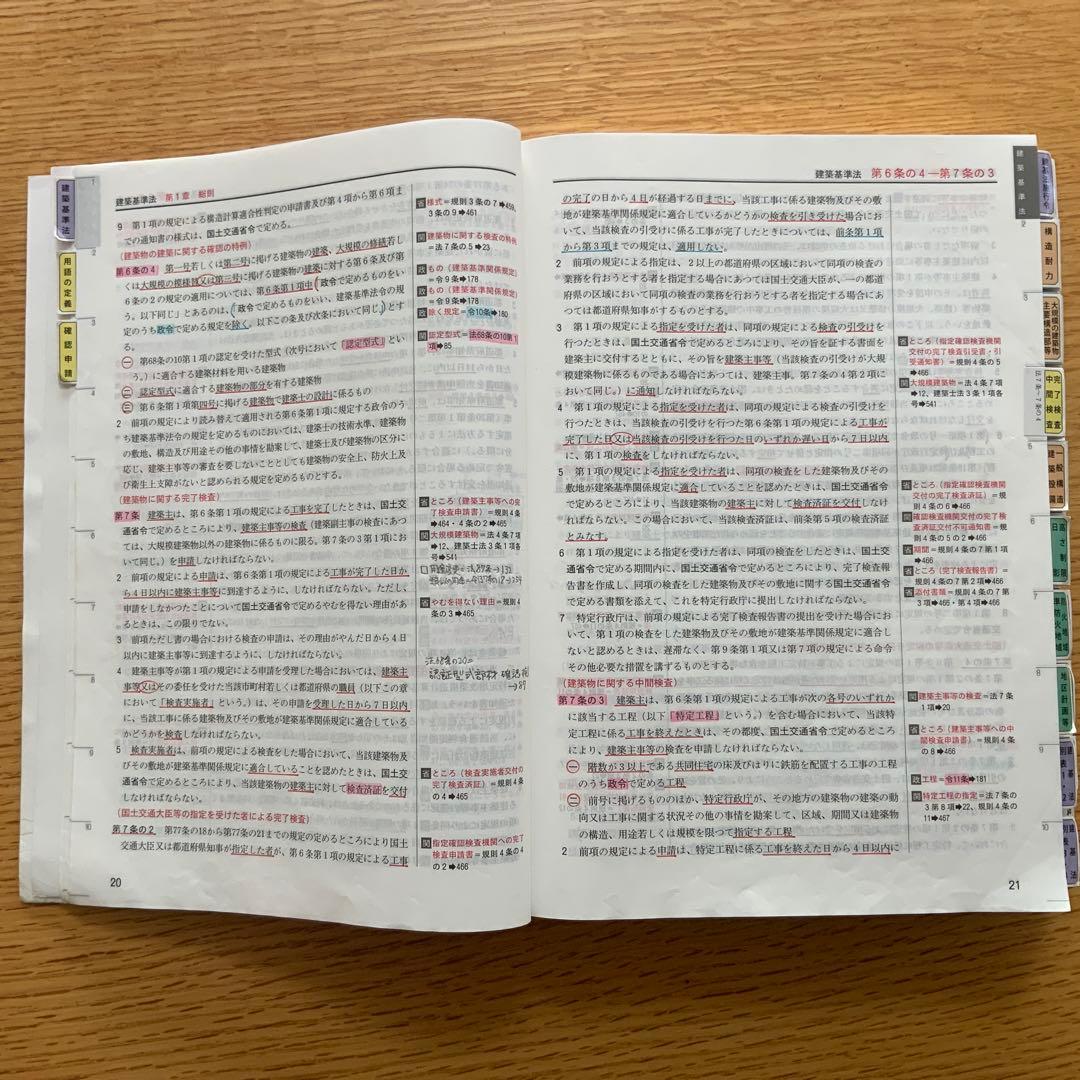 建築基準法 第1章 総則
9 第1項の規定による構造計算適合性判定の申請書及び第4項から第6項ま
での通知書の様式は、国土交通省令で定める。
(建築物の建築に関する確認の特例)
第6条の4 第一号若しくは第二号に掲げる建築物の建築、大規模の修繕若し
くは大規模の模様替又は第三号に掲げる建築物の建築に対する第6条及び第
6条の2の規定の適用については、第6条第1項中「政令で定めるものをい
う。以下同じ」とあるのは、「政令で定めるものをいい、建築基準法令の規
定のうち政令で定める規定を除く。以下この条及び次条において同じ」とす
る。
一 第68条の10第1項の認定を受けた型式(次号において「認定型式」とい
う。)に適合する建築材料を用いる建築物
二 認定型式に適合する建築物の部分を有する建築物
三 第6条第1項第四号に掲げる建築物で建築士の設計に係るもの
2 前項の規定により読み替えて適用される第6条第1項に規定する政令のう
ち建築基準法令の規定を定めるものにおいては、建築士の技術水準、建築物
の敷地、構造及び用途その他の事情を勘案して、建築士及び建築物の区分に
応じ、建築主事等の審査を要しないこととしても建築物の安全上、防火上及
び衛生上支障がないと認められる規定を定めるものとする。
(建築物に関する完了検査)
第7条 建築主は、第6条第1項の規定による工事を完了したときは、国土交
通省令で定めるところにより、建築主事等の検査(建築副主事の検査にあつ
ては、大規模建築物以外の建築物に係るものに限る。第7条の3第1項にお
いて同じ。)を申請しなければならない。
2 前項の規定による申請は、第6条第1項の規定による工事が完了した日か
ら4日以内に建築主事等に到達するように、しなければならない。ただし、
申請をしなかつたことについて国土交通省令で定めるやむを得ない理由があ
るときは、この限りでない。
3 前項ただし書の場合における検査の申請は、その理由がやんだ日から4日
以内に建築主事等に到達するように、しなければならない。
4 建築主事等が第1項の規定による申請を受理した場合においては、建築主
事等又はその委任を受けた当該市町村若しくは都道府県の職員(以下この章
において「検査実施者」という。)は、その申請を受理した日から7日以内
に、当該工事に係る建築物及びその敷地が建築基準関係規定に適合している
かどうかを検査しなければならない。
5 検査実施者は、前項の規定による検査をした場合において、当該建築物及
びその敷地が建築基準関係規定に適合していることを認めたときは、国土交
通省令で定めるところにより、当該建築物の建築主に対して検査済証を交付
しなければならない。
(国土交通大臣等の指定を受けた者による完了検査)
第7条の2 第77条の18から第77条の21までの規定の定めるところにより国土
交通大臣又は都道府県知事が指定した者が、第6条第1項の規定による工事
20
省様式=規則3条の7➡459、
3条の9➡461
関建築物に関する検査の特例
=法7条の5➡23
政もの(建築基準関係規定)
=令9条➡178
政もの(建築基準関係規定)
=令9条➡178
政除く規定=令10条➡180
関認定型式=法68条の10第1
項➡85
省ところ(建築主事等への完
了検査申請書)=規則4条
➡464・4条の2➡465
関大規模建築物=法4条7項
➡12、建築士法3条1項各
号➡541
省やむを得ない理由=規則4
条の3➡465
省ところ(検査実施者交付の
完了検査済証)=規則4条
の4➡465
関指定確認検査機関への完了
検査申請書=規則4条
の2➡466
建築基準法 第6条の4—第7条の3
の完了の日から4日が経過する日までに、当該工事に係る建築物及びその敷
地が建築基準関係規定に適合しているかどうかの検査を引き受けた場合にお
いて、当該検査の引受けに係る工事が完了したときについては、前条第1項
から第3項までの規定は、適用しない。
2 前項の規定による指定は、2以上の都道府県の区域において同項の検査の
業務を行おうとする者を指定する場合にあつては国土交通大臣が、一の都道
府県の区域において同項の検査の業務を行おうとする者を指定する場合にあ
つては都道府県知事がするものとする。
3 第1項の規定による指定を受けた者は、同項の規定による検査の引受けを
行つたときは、国土交通省令で定めるところにより、その旨を証する書面を
建築主に交付するとともに、その旨を建築主事等(当該検査の引受けが大規
模建築物に係るものである場合にあつては、建築主事。第7条の4第2項に
おいて同じ。)に通知しなければならない。
4 第1項の規定による指定を受けた者は、同項の規定による検査の引受けを
行つたときは、当該検査の引受けを行つた第6条第1項の規定による工事が
完了した日又は当該検査の引受けを行つた日のいずれか遅い日から7日以内
に、第1項の検査をしなければならない。
5 第1項の規定による指定を受けた者は、同項の検査をした建築物及びその
敷地が建築基準関係規定に適合していることを認めたときは、国土交通省令
で定めるところにより、当該建築物の建築主に対して検査済証を交付しなけ
ればならない。この場合において、当該検査済証は、前条第5項の検査済証
とみなす。
6 第1項の規定による指定を受けた者は、同項の検査をしたときは、国土交
通省令で定める期間内に、国土交通省令で定めるところにより、完了検査報
告書を作成し、同項の検査をした建築物及びその敷地に関する国土交通省令
で定める書類を添えて、これを特定行政庁に提出しなければならない。
7 特定行政庁は、前項の規定による完了検査報告書の提出を受けた場合にお
いて、第1項の検査をした建築物及びその敷地が建築基準関係規定に適合し
ないと認めるときは、遅滞なく、第9条第1項又は第7項の規定による命令
その他必要な措置を講ずるものとする。
(建築物に関する中間検査)
第7条の3 建築主は、第6条第1項の規定による工事が次の各号のいずれか
に該当する工程(以下「特定工程」という。)を含む場合において、当該特
定工程に係る工事を終えたときは、その都度、国土交通省令で定めるところ
により、建築主事等の検査を申請しなければならない。
一 階数が3以上である共同住宅の床及びはりに鉄筋を配置する工事の工程
のうち政令で定める工程
二 前号に掲げるもののほか、特定行政庁が、その地方の建築物の建築の動
向又は工事に関する状況その他の事情を勘案して、区域、期間又は建築物
の構造、用途若しくは規模を限つて指定する工程
2 前項の規定による申請は、特定工程に係る工事を終えた日から4日以内に
21
省ところ(指定確認検査機関
交付の完了検査引受書・引
受通知書)=規則4条の5
➡466
関大規模建築物=法4条7項
➡12、建築士法3条1項各
号➡541
省ところ(指定確認検査機関
交付の完了検査済証)=規
則4条の6➡466
関確認検査機関交付の完了検
査済証交付不可通知書=規
則4条の5の2➡466
省期間=規則4条の7第1項
➡466
省ところ(完了検査報告書)=
規則4条の7第2項➡466
省添付書類=規則4条の7第
3項➡466・第4項➡466
関建築主事等の検査=法7条
1項➡20
省ところ(建築主事等への中
間検査申請書)=規則4条
の8➡466
政工程=令11条➡181
関特定工程の指定=法7条の
3第8項➡22、規則4条の
11➡467
建築基準法
用語の定義
確認申請
建築基準法
構造耐力
大規模の建築物
主要構造部等
完了検査
中間検査
一般構造
建築設備
高さ制限
日影
防火地域
準防火地域
地区計画等